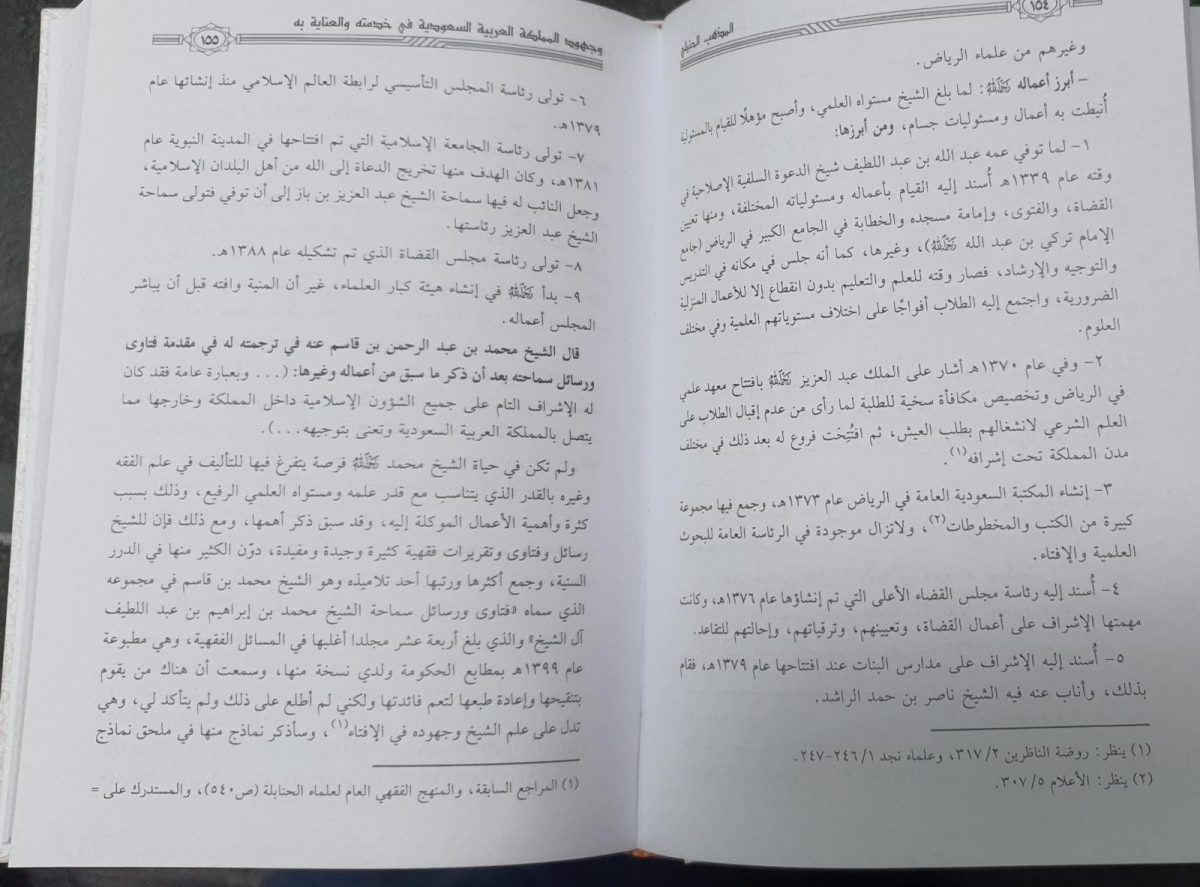 ١٥٤
المذهب الحنبلي
وغيرهم من علماء الرياض.
- أبرز أعماله رحمه الله: لما بلغ الشيخ مستواه العلمي، وأصبح مؤهلًا للقيام بالمسئولية
أُنيطت به أعمال ومسئوليات جسام، ومن أبرزها:
١- لما توفي عمه عبد الله بن عبد اللطيف شيخ الدعوة السلفية الإصلاحية في
وقته عام ١٣٣٩هـ أُسند إليه القيام بأعماله ومسئولياته المختلفة، ومنها تعيين
القضاة، والفتوى، وإمامة مسجده والخطابة في الجامع الكبير في الرياض (جامع
الإمام تركي بن عبد الله رحمه الله)، وغيرها، كما أنه جلس في مكانه في التدريس
والتوجيه والإرشاد، فصار وقته للعلم والتعليم بدون انقطاع إلا للأعمال المنزلية
الضرورية، واجتمع إليه الطلاب أفواجًا على اختلاف مستوياتهم العلمية وفي مختلف
العلوم.
٢- وفي عام ١٣٧٠هـ أشار على الملك عبد العزيز رحمه الله بافتتاح معهد علمي
في الرياض وتخصيص مكافأة سخية للطلبة لما رأى من عدم إقبال الطلاب على
العلم الشرعي لانشغالهم بطلب العيش، ثم افتُتِحَت فروع له بعد ذلك في مختلف
مدن المملكة تحت إشرافه(١).
٣- إنشاء المكتبة السعودية العامة في الرياض عام ١٣٧٣هـ، وجمع فيها مجموعة
كبيرة من الكتب والمخطوطات(٢)، ولاتزال موجودة في الرئاسة العامة للبحوث
العلمية والإفتاء.
٤- أُسند إليه رئاسة مجلس القضاء الأعلى التي تم إنشاؤها عام ١٣٧٦هـ، وكانت
مهمتها الإشراف على أعمال القضاة، وتعيينهم، وترقياتهم، وإحالتهم للتقاعد.
٥- أُسند إليه الإشراف على مدارس البنات عند افتتاحها عام ١٣٧٩هـ، فقام
بذلك، وأناب عنه فيه الشيخ ناصر بن حمد الراشد.
(١) ينظر: روضة الناظرين ٢/ ٣١٧، وعلماء نجد ١/ ٢٤٦-٢٤٧.
(٢) ينظر: الأعلام ٥/ ٣٠٧.
وجهود المملكة العربية السعودية في خدمته والعناية به
١٥٥
٦- تولى رئاسة المجلس التأسيسي لرابطة العالم الإسلامي منذ إنشائها عام
١٣٧٩هـ.
٧- تولى رئاسة الجامعة الإسلامية التي تم افتتاحها في المدينة النبوية عام
١٣٨١هـ، وكان الهدف منها تخريج الدعاة إلى الله من أهل البلدان الإسلامية،
وجعل النائب له فيها سماحة الشيخ عبد العزيز بن باز إلى أن توفي فتولى سماحة
الشيخ عبد العزيز رئاستها.
٨- تولى رئاسة مجلس القضاة الذي تم تشكيله عام ١٣٨٨هـ.
٩- بدأ رحمه الله في إنشاء هيئة كبار العلماء، غير أن المنية وافته قبل أن يباشر
المجلس أعماله.
قال الشيخ محمد بن عبد الرحمن بن قاسم عنه في ترجمته له في مقدمة فتاوى
ورسائل سماحته بعد أن ذكر ما سبق من أعماله وغيرها: (... وبعبارة عامة فقد كان
له الإشراف التام على جميع الشؤون الإسلامية داخل المملكة وخارجها مما
يتصل بالمملكة العربية السعودية وتعنى بتوجيهه...).
ولم تكن في حياة الشيخ محمد رحمه الله فرصة يتفرغ فيها للتأليف في علم الفقه
وغيره بالقدر الذي يتناسب مع قدر علمه ومستواه العلمي الرفيع، وذلك بسبب
كثرة وأهمية الأعمال الموكلة إليه، وقد سبق ذكر أهمها، ومع ذلك فإن للشيخ
رسائل وفتاوى وتقريرات فقهية كثيرة وجيدة ومفيدة، دوّن الكثير منها في الدرر
السنية، وجمع أكثرها ورتبها أحد تلاميذه وهو الشيخ محمد بن قاسم في مجموعه
الذي سماه «فتاوى ورسائل سماحة الشيخ محمد بن إبراهيم بن عبد اللطيف
آل الشيخ» والذي بلغ أربعة عشر مجلدا أغلبها في المسائل الفقهية، وهي مطبوعة
عام ١٣٩٩هـ بمطابع الحكومة ولدي نسخة منها، وسمعت أن هناك من يقوم
بتنقيحها وإعادة طبعها لتعم فائدتها ولكني لم أطلع على ذلك ولم يتأكد لي، وهي
تدل على علم الشيخ وجهوده في الإفتاء(١)، وسأذكر نماذج منها في ملحق نماذج
(١) المراجع السابقة، والمنهج الفقهي العام لعلماء الحنابلة (ص٥٤٠)، والمستدرك على =